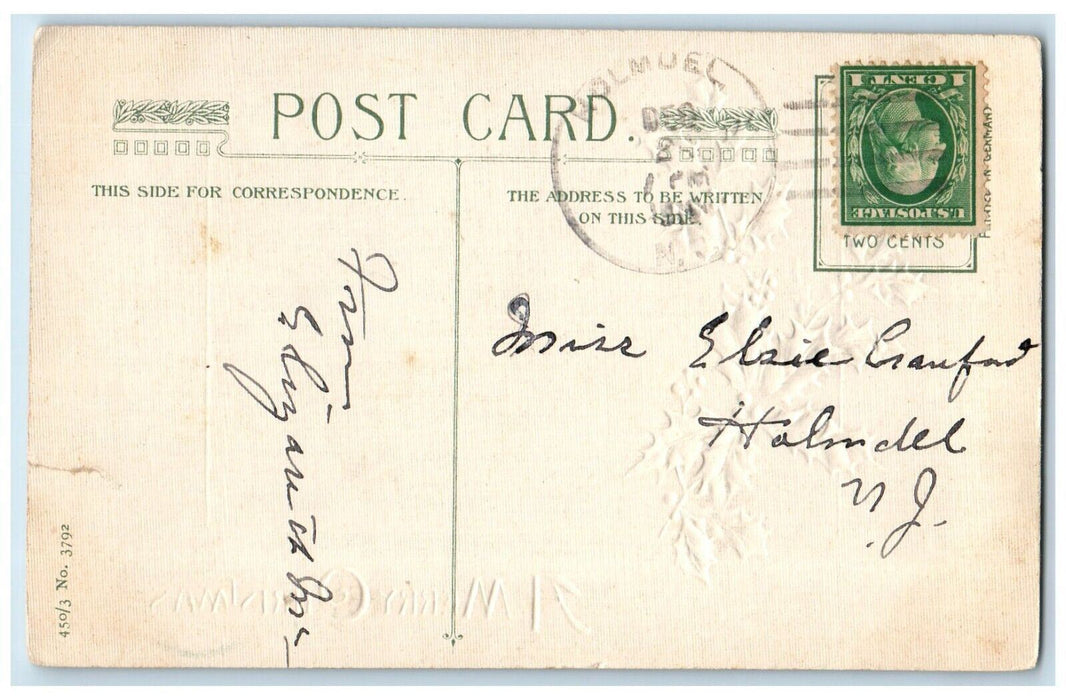 POST CARD.
THIS SIDE FOR CORRESPONDENCE.
THE ADDRESS TO BE WRITTEN
ON THIS SIDE.
HOLMDEL
DEC
N.J.
1 CENT 1
U.S. POSTAGE
TWO CENTS
PRINTED IN GERMANY
From
Miss Elsie Cranford
Holmdel
N J.
A Merry Christmas
450/3 No. 3792